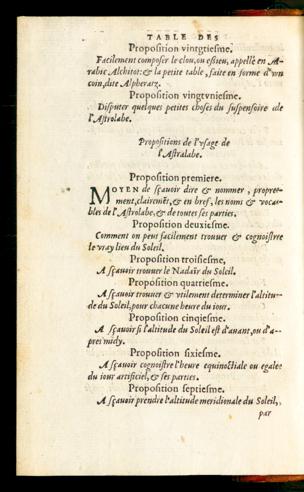 TABLE DES
Proposition vintgtiesme.
Facilement composer le clou, ou estieu, appellè en A-
rabic Alchitot: & la petite table, faite en forme d'vn
coin, dite Alpheratz.
Proposition vingtvniesme.
Disputer quelques petites choses du suspensoire de
l'Astrolabe.
Propositions de l'vsage de
l'Astralabe.
Proposition premiere.
MOYEN de sçauoir dire & nommer, propret-
ment, clairemēt, & en bref, les noms & vocar-
bles de l'Astrolabe, & de toutes ses parties.
Proposition deuxiesme.
Comment on peut facilement trouuer & cognoistre
le vray lieu du Soleil.
Proposition troisiesme,
A sçauoir trouuer le Nadair du Soleil.
Proposition quatriesme.
A sçauoir trouuer & vtilement determiner l'altitu-
de du Soleil, pour chacune heure du iour.
Proposition cinqiesme.
A sçauoir si l'altitude du Soleil est d'auant, ou d'a-
pres midy.
Proposition sixiesme.
A sçauoir cognoistre l'heure equinoctiale ou egale:
du iour artificiel, & ses parties.
Proposition septiesme.
A sçauoir prendre l'altitude meridionale du Soleil,
par